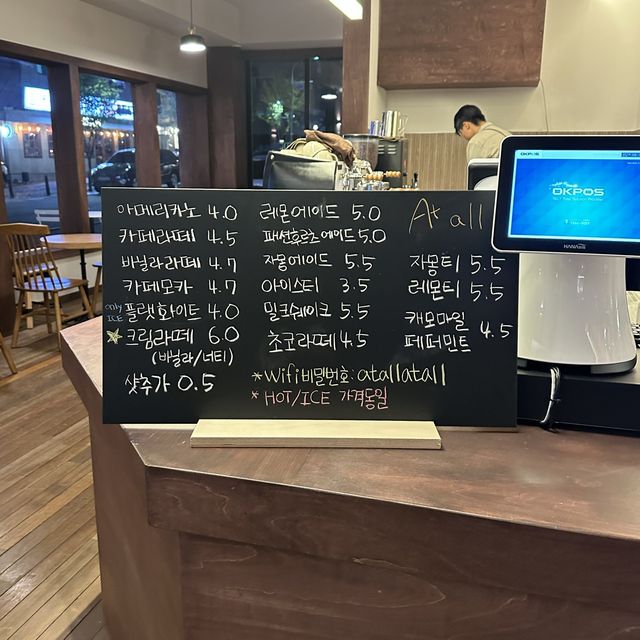 At all
아메리카노 4.0
카페라떼 4.5
바닐라라떼 4.7
카페모카 4.7
only ICE 플랫화이트 4.0
크림라떼 6.0
(바닐라/너티)
샷추가 0.5
레몬에이드 5.0
패션후르츠에이드 5.0
자몽에이드 5.5
아이스티 3.5
밀크쉐이크 5.5
초코라떼 4.5
자몽티 5.5
레몬티 5.5
캐모마일
페퍼민트 4.5
*Wifi 비밀번호: atallatall
* HOT/ICE 가격동일
OKPOS
OKPOS
HANASIS